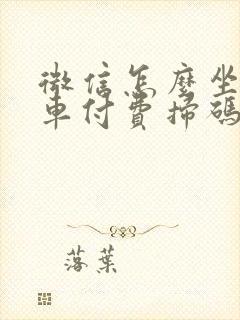 微信怎麽坐
車付費掃碼
落葉